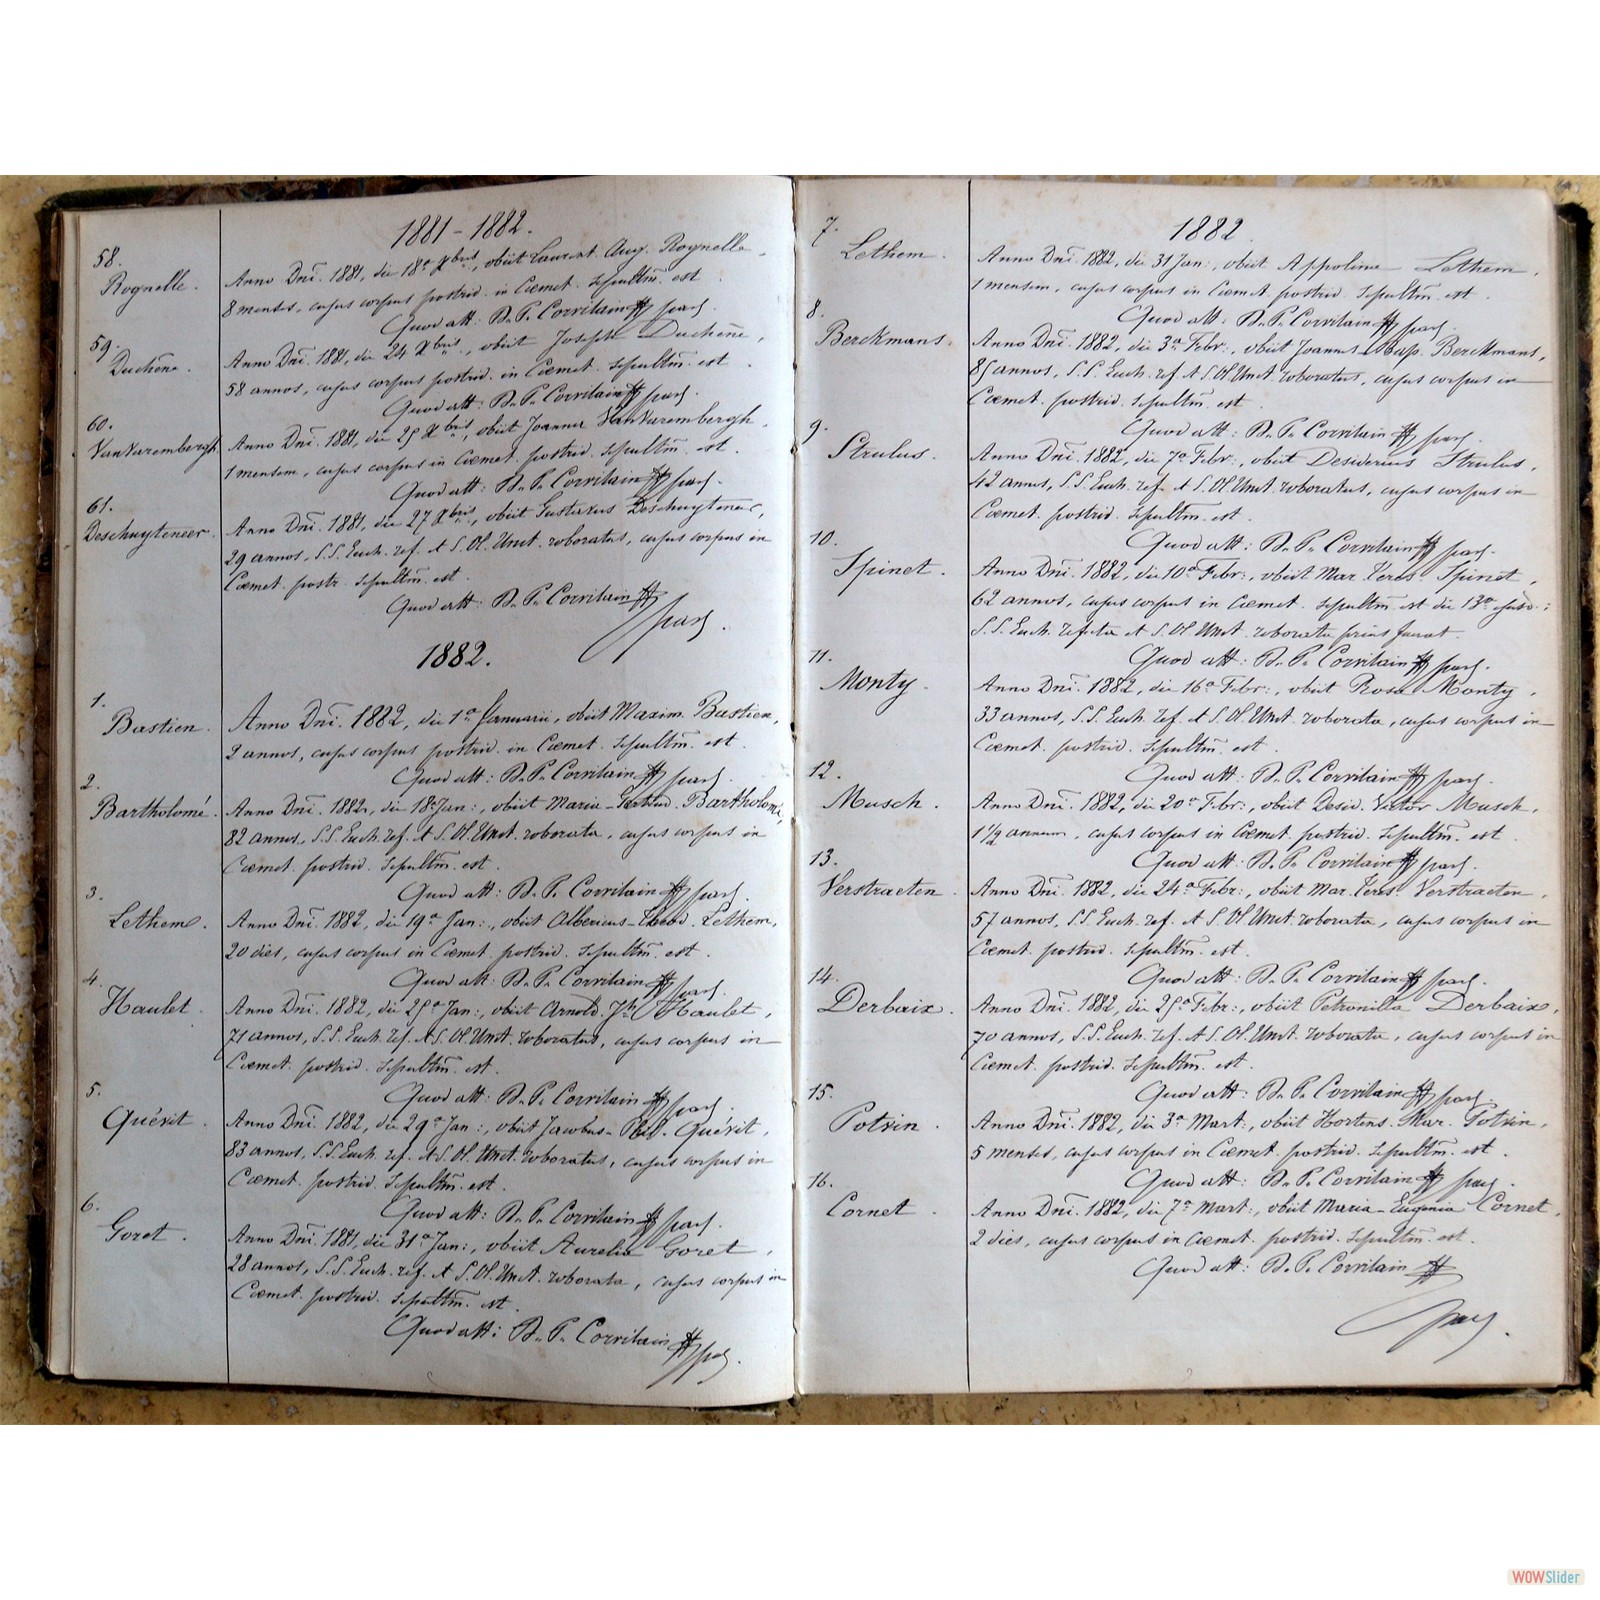 1881 - 1882.
58.
Rognelle.
Anno Dnī. 1881, die 18ª Xbris, obiit Laurent. Aug. Rognelle,
8 menses, cujus corpus postrid. in Cœmet. sepultm̄. est.
Quod att: D. P. Corvilain
59.
Duchêne.
Anno Dnī. 1881, die 24 Xbris., obiit Joseph Duchêne,
58 annos, cujus corpus postrid. in Cœmet. sepultm̄. est.
Quod att: D. P. Corvilain
60.
VanVarembergh.
Anno Dnī. 1881, die 25 Xbris, obiit Joanna VanVarembergh,
1 mensem, cujus corpus in Cœmet. postrid. sepultm̄. est.
Quod att: D. P. Corvilain
61.
Deschuyteneer.
Anno Dnī. 1881, die 27 Xbris, obiit Gustavus Deschuyteneer,
29 annos, S.S. Euch. ref. et S. Ol. Unct. roboratus, cujus corpus in
Cœmet. postr. sepultm̄. est.
Quod att: D. P. Corvilain
1882.
1.
Bastien.
Anno Dnī. 1882, die 1ª Januarii, obiit Maxim. Bastien,
2 annos, cujus corpus postrid. in Cœmet. sepultm̄. est.
Quod att: D. P. Corvilain
2.
Bartholomé.
Anno Dnī. 1882, die 18ª Jan:, obiit Maria- Bartholomé,
82 annos, S.S. Euch. ref. et S. Ol. Unct. roborata, cujus corpus in
Cœmet. postrid. sepultm̄. est.
Quod att: D. P. Corvilain
3.
Lethem.
Anno Dnī. 1882, die 19ª Jan:, obiit Albericus-Theod. Lethem,
20 dies, cujus corpus in Cœmet. postrid. sepultm̄. est.
Quod att: D. P. Corvilain
4.
Haulet.
Anno Dnī. 1882, die 25ª Jan:, obiit Arnold. Jh Haulet,
71 annos, S.S. Euch. ref. et S. Ol. Unct. roboratus, cujus corpus in
Cœmet. postrid. sepultm̄. est.
Quod att: D. P. Corvilain
5.
Quérit.
Anno Dnī. 1882, die 29ª Jan:, obiit Jacobus- Quérit,
83 annos, S.S. Euch. ref. et S. Ol. Unct. roboratus, cujus corpus in
Cœmet. postrid. sepultm̄. est.
Quod att: D. P. Corvilain
6.
Goret.
Anno Dnī. 1881, die 31ª Jan:, obiit Aurelia Goret,
28 annos, S.S. Euch. ref. et S. Ol. Unct. roborata, cujus corpus in
Cœmet. postrid. sepultm̄. est.
Quod att: D. P. Corvilain
1882
7.
Lethem.
Anno Dnī. 1882, die 31 Jan:, obiit Appolinia Lethem,
1 mensem, cujus corpus in Cœmet. postrid. sepultm̄. est.
Quod att: D. P. Corvilain
8.
Berckmans.
Anno Dnī. 1882, die 3ª Febr:, obiit Joannes Bap. Berckmans,
85 annos, S.S. Euch. ref. et S. Ol. Unct. roboratus, cujus corpus in
Cœmet. postrid. sepultm̄. est.
Quod att: D. P. Corvilain
9.
Strulus.
Anno Dnī. 1882, die 7ª Febr:, obiit Desiderius Strulus,
42 annos, S.S. Euch. ref. et S. Ol. Unct. roboratus, cujus corpus in
Cœmet. postrid. sepultm̄. est.
Quod att: D. P. Corvilain
10.
Spinet.
Anno Dnī. 1882, die 10ª Febr:, obiit Mar. Teres. Spinet,
62 annos, cujus corpus in Cœmet. sepultm̄. est die 13ª
S.S. Euch. refecta et S. Ol. Unct. roborata prius fuerat.
Quod att: D. P. Corvilain
11.
Monty.
Anno Dnī. 1882, die 16ª Febr:, obiit Rosa Monty,
33 annos, S.S. Euch. ref. et S. Ol. Unct. roborata, cujus corpus in
Cœmet. postrid. sepultm̄. est.
Quod att: D. P. Corvilain
12.
Musch.
Anno Dnī. 1882, die 20ª Febr:, obiit Desid. Victor Musch,
1 1/2 annum, cujus corpus in Cœmet. postrid. sepultm̄. est.
Quod att: D. P. Corvilain
13.
Verstracten.
Anno Dnī. 1882, die 24ª Febr:, obiit Mar. Teres. Verstracten,
57 annos, S.S. Euch. ref. et S. Ol. Unct. roborata, cujus corpus in
Cœmet. postrid. sepultm̄. est.
Quod att: D. P. Corvilain
14.
Derbaix.
Anno Dnī. 1882, die 25ª Febr:, obiit Petronilla Derbaix,
70 annos, S.S. Euch. ref. et S. Ol. Unct. roborata, cujus corpus in
Cœmet. postrid. sepultm̄. est.
Quod att: D. P. Corvilain
15.
Potvin.
Anno Dnī. 1882, die 3ª Mart:, obiit Hortens. Mar. Potvin,
5 menses, cujus corpus in Cœmet. postrid. sepultm̄. est.
Quod att: D. P. Corvilain
16.
Cornet.
Anno Dnī. 1882, die 7ª Mart:, obiit Maria-Eugenia Cornet,
2 dies, cujus corpus in Cœmet. postrid. sepultm̄. est.
Quod att: D. P. Corvilain
WOWSlider